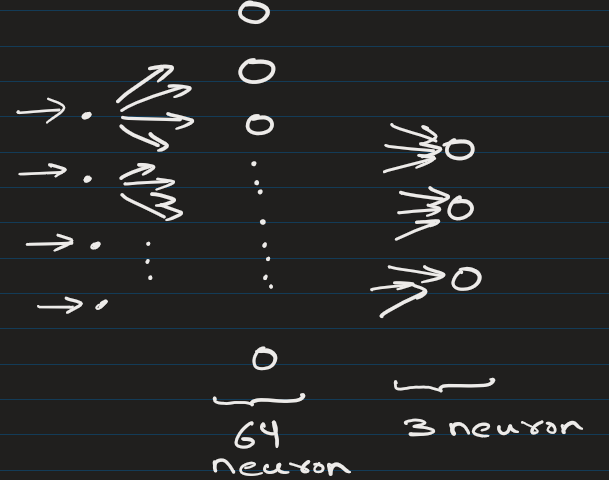 64
neuron
3 neuron